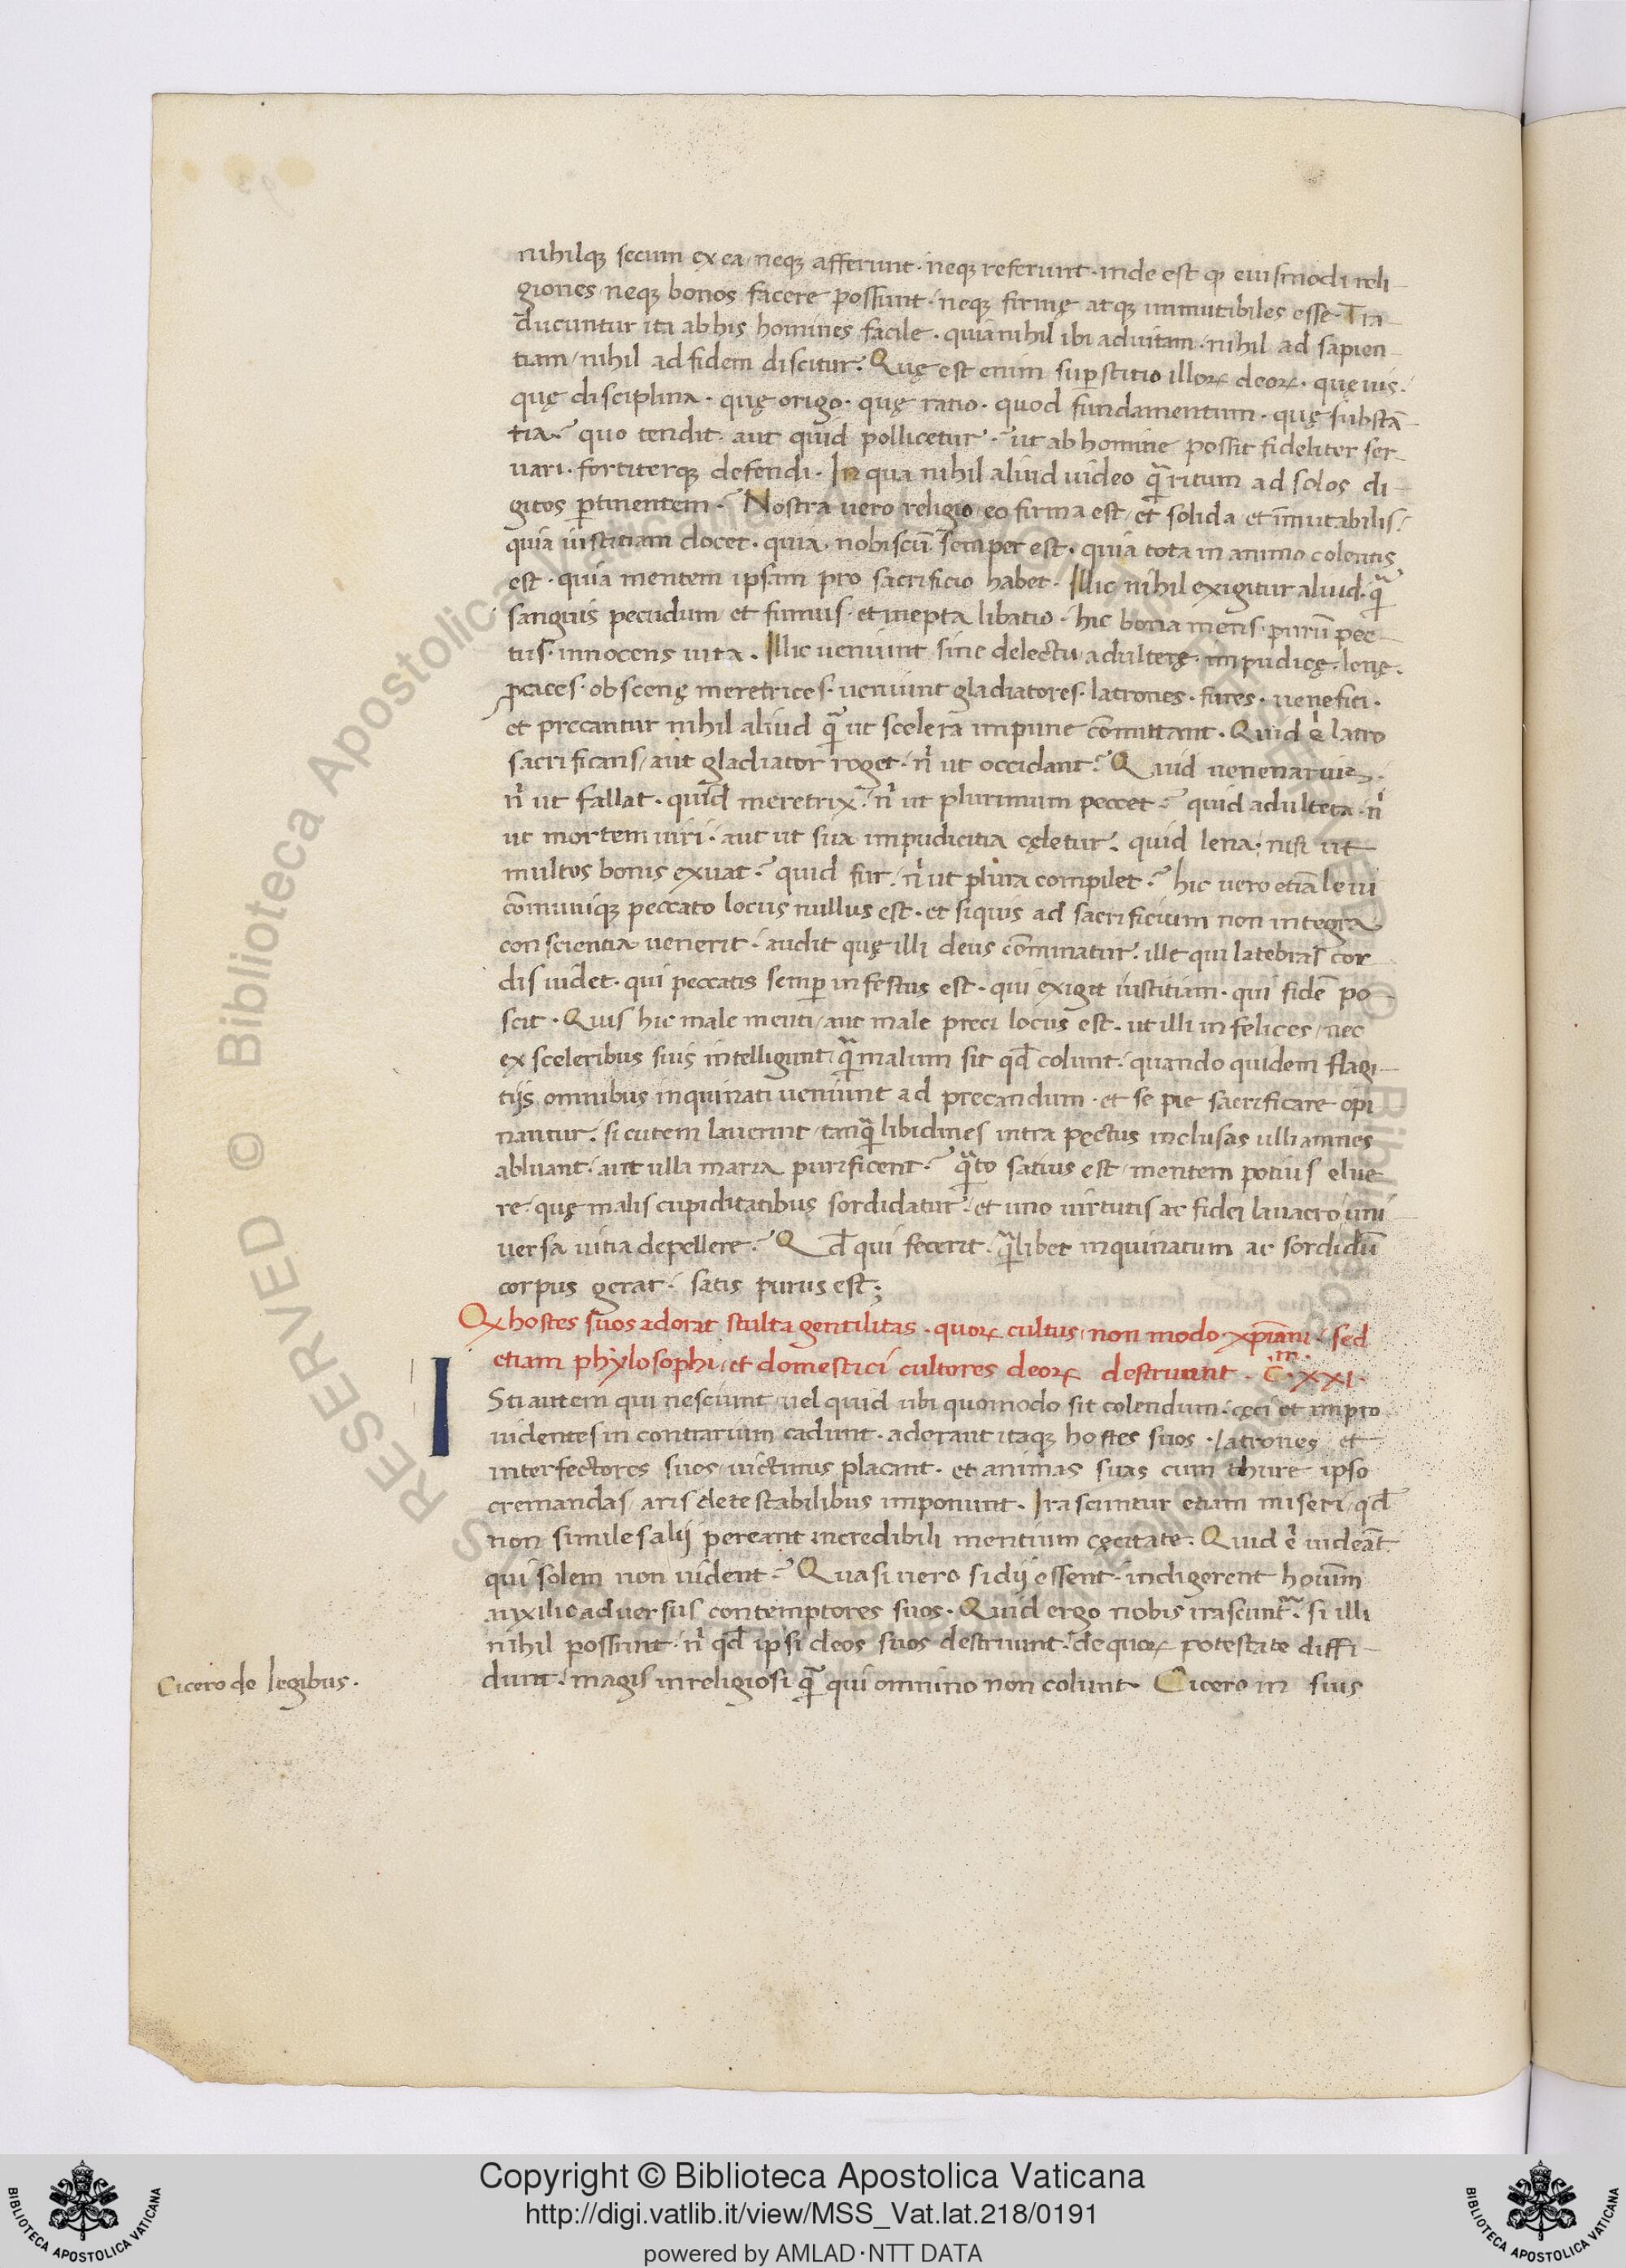 nihilq; secum ex ea / neq; afferunt · neq; referunt · inde est q̃ eiusmodi reli-
giones neq; bonos facere possunt · neq; firmę atq; immutibiles esse · Tra-
ducuntur ita ab his homines facile · quia nihil ibi ad uitam · nihil ad sapien-
tiam / nihil ad fidem discitur. Quę est enim sup̱stitio illoꝝ deoꝝ · quę uis ·
quę disciplina · quę origo · quę ratio · quod fundamentum · quę substā-
tia ? quo tendit aut quid pollicetur ? ut ab homine possit fideliter ser-
uari · fortiterq; defendi · In qua nihil aliud uideo q̃ ritum ad solos di-
gitos ꝑtinentem ? Nostra uero religio / eo firma est / et solida et imutabilis /
quia iustitiam docet · quia nobiscū semper est · quia tota in animo colentis
est · quia mentem ipsam pro sacrificio habet · Illic nihil exigitur aliud · q̃
sanguis pecudum / et fumus · et inepta libatio · hic bona mens · purū pec-
tus · innocens uita · Illic ueniunt sine delectu / adulterę · impudicę · lenę ·
procaces · obscenę meretrices · ueniunt gladiatores · latrones · fures · uenefici ·
et precantur nihil aliud q̃ ut scelera impune cōmittant · Quid ē latro
sacrificans / aut gladiator roget · n̄ ut occidant ? Quid uenenarius ·
n̄ ut fallat · quid meretrix ? n̄ ut plurimum peccet ? quid adultera · n̄
ut mortem uiri · aut ut sua impudicitia cęletur · quid lena · nisi ut
multos bonis exuat ? quid fur / n̄ ut plura compilet ? hic uero etiā leui
cōmuniq; peccato locus nullus est · et siquis ad sacrificium non integra
conscientia uenerit · audit quę illi deus cōminatur · ille qui latebras cor
dis uidet · qui peccatis semꝑ infestus est · qui exigit iustitiam · qui fidē po-
scit · Quis hic male menti / aut male preci locus est · ut illi infelices / nec
ex sceleribus suis intelligunt / q̃ malum sit qd̄ colunt · quando quidem flagi-
tijs omnibus inquinati ueniunt ad precandum · et se pie sacrificare opi
nantur · si cutem lauerint / tanq̃ libidines intra pectus inclusas ulli amnes
abluant · aut ulla maria purificent ? q̃to satius est / mentem potius elue-
re · quę malis cupiditatibus sordidatur · et uno uirtutis ac fidei lauacro / uni
uersa uitia depellere ? Qd̄ qui fecerit · q̃libet inquinatum ac sordidū
corpus gerat · satis purus est ;
Q hostes suos adorat stulta gentilitas · quoꝝ cultus / non modo xp̄iani · sed
etiam phylosophi / et domestici cultores deoꝝ destruunt · C.m XXI ·
ISti autem qui nesciunt / uel quid ubi quomodo sit colendum · cęci et impro
uidentes in contrarium cadunt · adorant itaq; hostes suos · latrones et
interfectores suos / uictimis placant · et animas suas cum thure ipso
cremandas / aris detestabilibus imponunt · Irascuntur etiam miseri / qd̄
non simile salij pereant incredibili mentium cęcitate · Quid ē uideāt
qui solem non uident ? Quasi uero si dij essent · indigerent hoīum
auxilio aduersus contemptores suos · Quid ergo nobis irascunt̄ · si illi
nihil possunt · n̄ qd̄ ipsi deos suos destruunt · de quoꝝ potestate diffi-
dunt · magis inreligiosi q̃ qui omnino non colunt · Cicero in suis
Cicero de legibus ·
RESERVED © Biblioteca Apostolica Vaticana
Copyright © Biblioteca Apostolica Vaticana
http://digi.vatlib.it/view/MSS_Vat.lat.218/0191
powered by AMLAD·NTT DATA
BIBLIOTECA APOSTOLICA VATICANA
BIBLIOTECA APOSTOLICA VATICANA